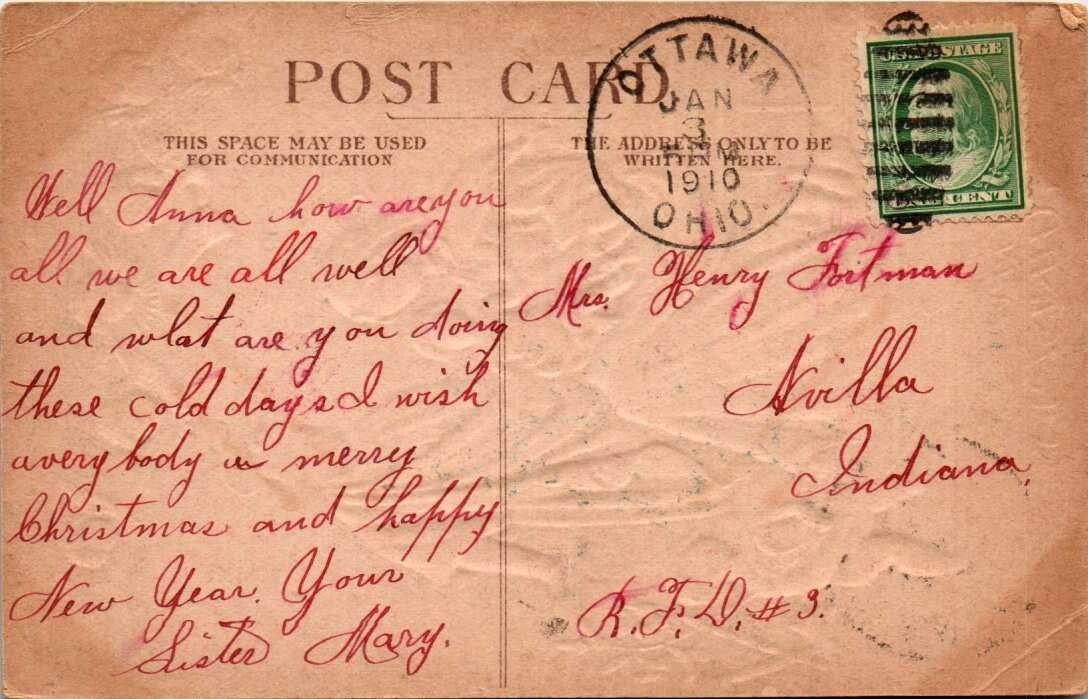 POST CARD
THIS SPACE MAY BE USED
FOR COMMUNICATION
THE ADDRESS ONLY TO BE
WRITTEN HERE.
OTTAWA
JAN
3
PM
1910
OHIO.
U.S. POSTAGE
CENT
Well Anna how are you
all we are all well
and what are you doing
these cold days I wish
avery body a merry
Christmas and happy
New Year. Your
Sister Mary.
Mrs. Henry Fortman
Avilla
Indiana,
R.F.D. #3.